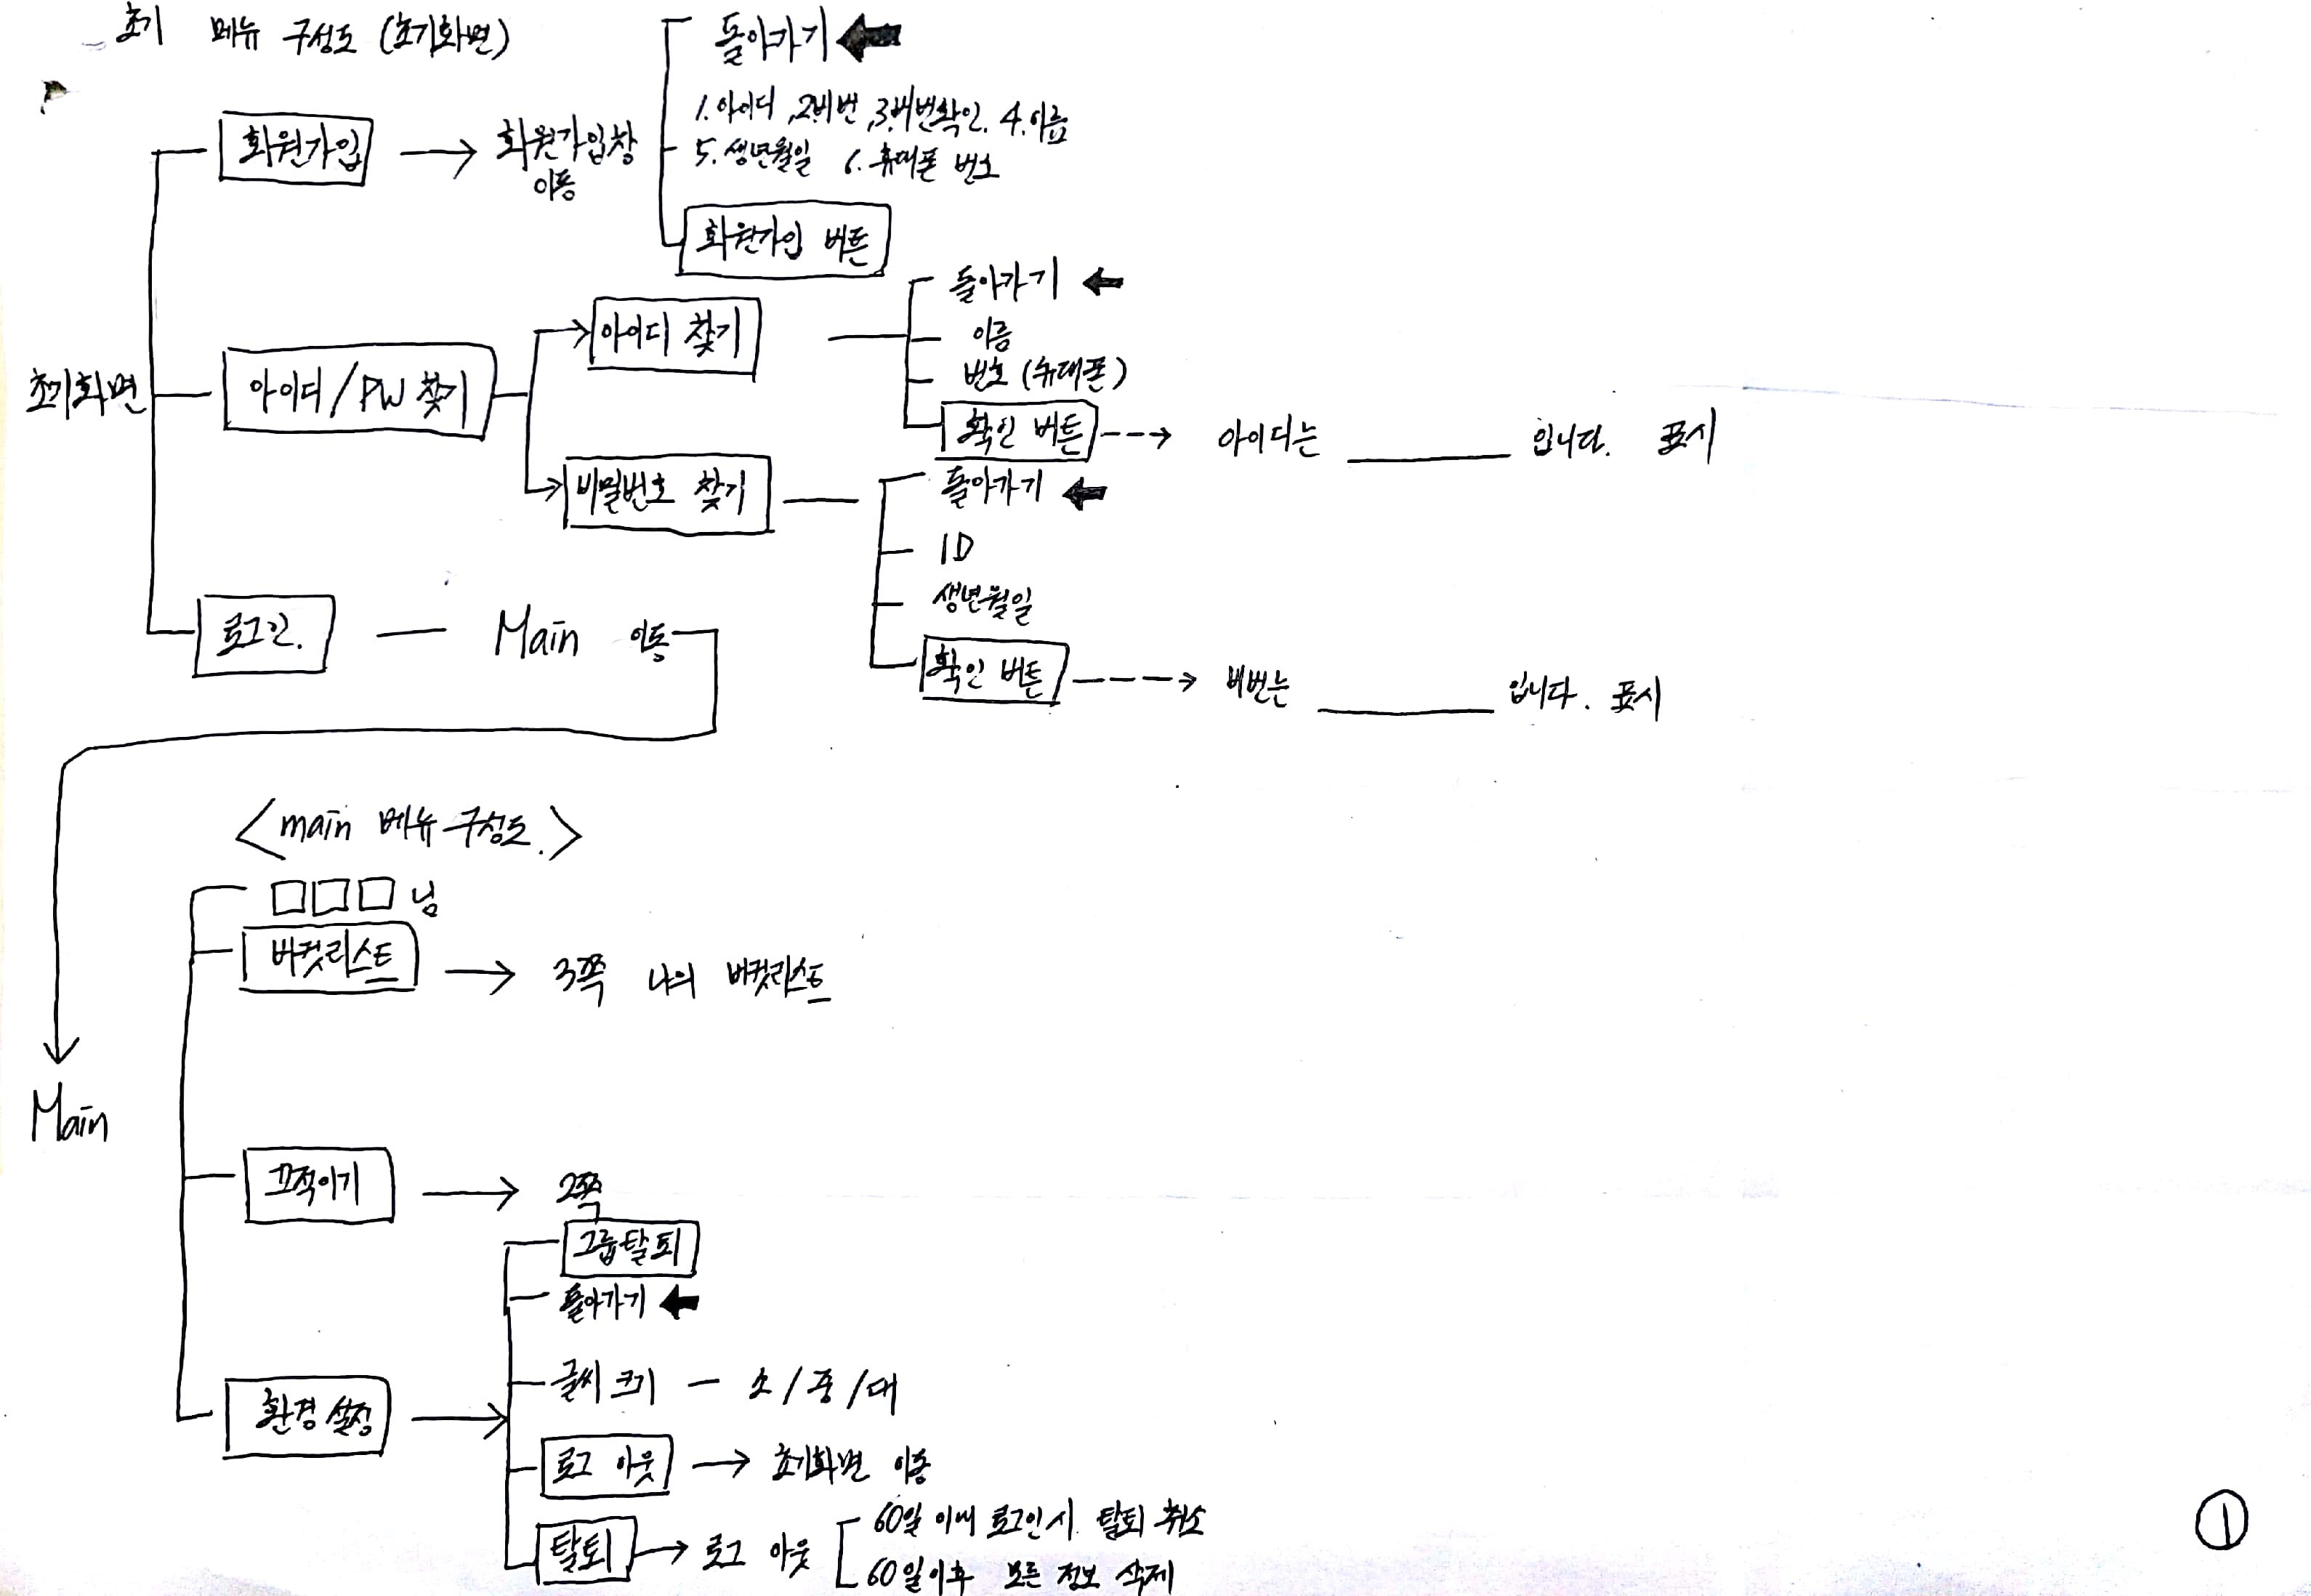 초기 메뉴 구성도 (초기화면)
돌아가기
1. 아이디, 2.비번, 3.비번확인. 4.이름
5. 생년월일 6. 휴대폰 번호
회원가입
회원가입창
이동
회원가입 버튼
초기화면
아이디/PW 찾기
아이디 찾기
돌아가기
이름
번호 (휴대폰)
확인 버튼
아이디는 ________ 입니다. 표시
비밀번호 찾기
돌아가기
ID
생년월일
확인 버튼
비번는 ________ 입니다. 표시
로그인.
Main 이동
<main 메뉴 구성도.>
□□□ 님
버킷리스트
3쪽 나의 버킷리스트
Main
끄적이기
2쪽
환경설정
그룹탈퇴
돌아가기
글씨 크기 - 소/중/대
로그 아웃
초기화면 이동
탈퇴
로그 아웃
60일 이내 로그인시 탈퇴 취소
60일이후 모든 정보 삭제
1